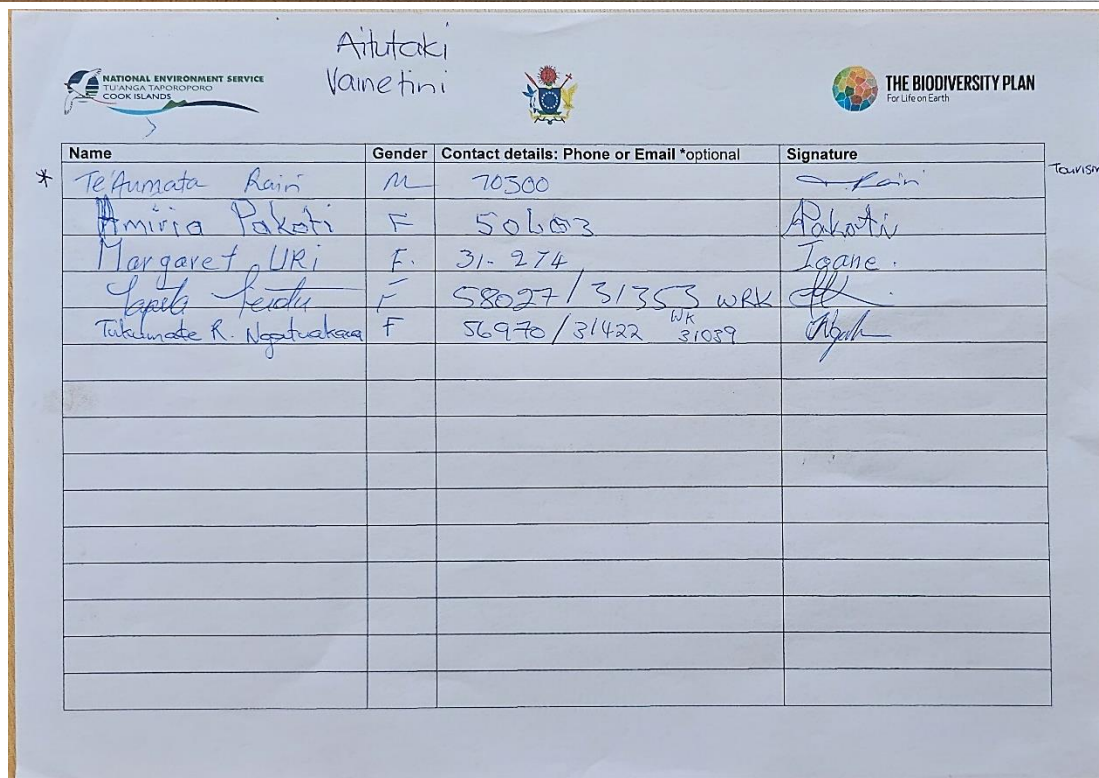 Aitutaki
Vainetini
NATIONAL ENVIRONMENT SERVICE
TU'ANGA TAPOROPORO
COOK ISLANDS
THE BIODIVERSITY PLAN
For Life on Earth
Name Gender Contact details: Phone or Email *optional Signature
* Te'Aumata Rairi M 70500 Rairi Tourism
Amiria Pakoti F 50603 Pakoti
Margaret URi F. 31-274 Ioane.
F 58027 / 31353 WRK
R. F 56970 / 31422 WK 31039